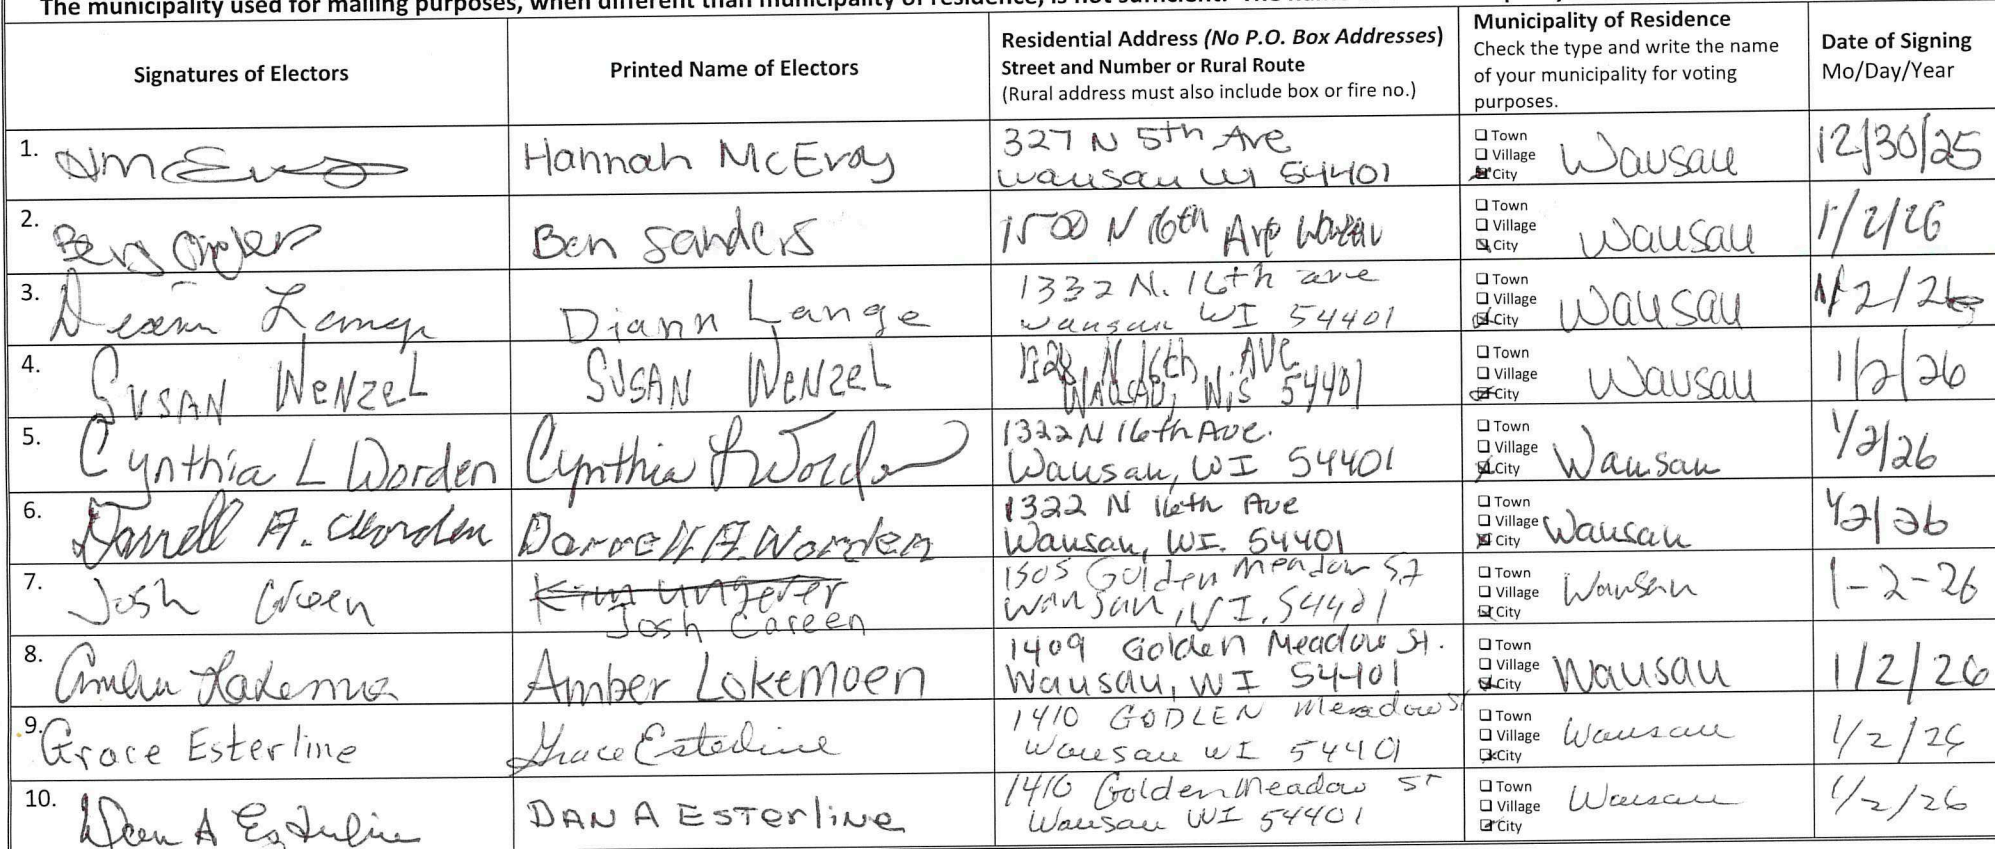 The municipality used for mailing purposes, when different than municipality of residence, is not sufficient.
Signatures of Electors
Printed Name of Electors
Residential Address (No P.O. Box Addresses)
Street and Number or Rural Route
(Rural address must also include box or fire no.)
Municipality of Residence
Check the type and write the name
of your municipality for voting
purposes.
Date of Signing
Mo/Day/Year
1.
Hannah McEvoy
327 N 5th Ave
Wausau WI 54401
Town
Village
City
Wausau
12/30/25
2.
Ben Sanders
1500 N 16th Ave Wausau
Town
Village
City
Wausau
1/2/26
3.
Diann Lange
Diann Lange
1332 N. 16th ave
Wausau WI 54401
Town
Village
City
Wausau
1/2/26
4.
SUSAN WENZEL
SUSAN WENZEL
1328 N 16th AVE
WAUSAU, Wis 54401
Town
Village
City
Wausau
1/2/26
5.
Cynthia L Worden
Cynthia L Worden
1322 N 16th Ave.
Wausau, WI 54401
Town
Village
City
Wausau
1/2/26
6.
Darrell A. Worden
Darrell A. Worden
1322 N 16th Ave
Wausau, WI. 54401
Town
Village
City
Wausau
1/2/26
7.
Josh Green
Kim Ungerer
Josh Gareen
1505 Golden Meadow St
Wausau, WI. 54401
Town
Village
City
Wausau
1-2-26
8.
Amber Lokemoen
Amber Lokemoen
1409 Golden Meadow St.
Wausau, WI 54401
Town
Village
City
Wausau
1/2/26
9.
Grace Esterline
Grace Esterline
1410 GODLEN Meadow St
Wausau WI 54401
Town
Village
City
Wausau
1/2/26
10.
Dan A Esterline
DAN A ESTerline
1410 Golden Meadow ST
Wausau WI 54401
Town
Village
City
Wausau
1/2/26